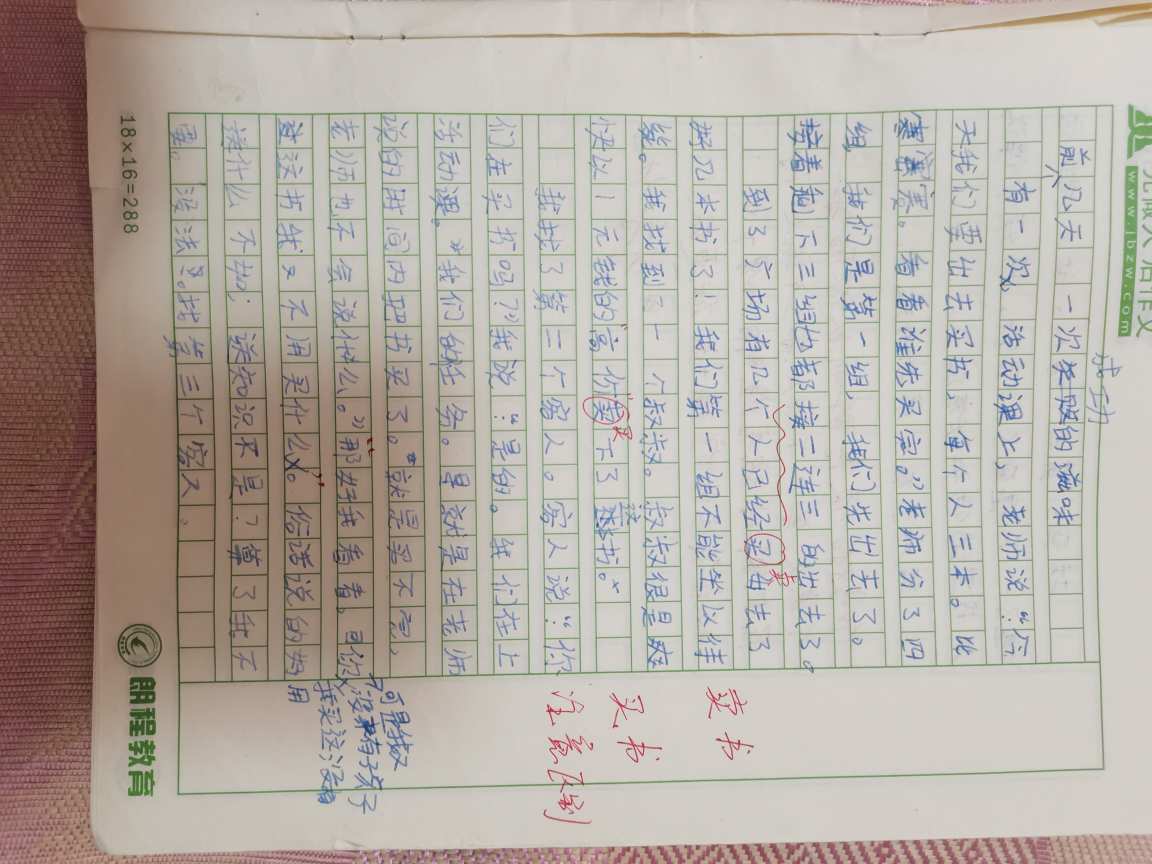 www.jbzw.com
成功
前几天 一次卖书的滋味
有一次,活动课上,老师说:“今
天我们要出去买书,每个人三本。比
赛。看看谁先买完。”老师分了四
组,我们是第一组,我们先出去了。
接着剩下三组也都接二连三的出去了。
到了广场有几个人已经买出去了
卖
好几本书了!我们第一组不能坐以待
毙。我找到了一个叔叔。叔叔很是爽
快以1元钱的“高价”卖下了这本书。
买
我找了第二个客人。客人说:“你
们在买书吗?”我说:“是的。我们在上
活动课。”我们的任务。是就是在老师
说的时间内把书买了。“就是买不完,
老师也不会说什么。”“那好我看看。可
这这书我又不用买什么。”俗话说的好
读什么不如,读知识不是?算了我不
买。没法了。找第三个客人。
卖书
买书
注意区别
可是叔
不没有孩子
我买这没啥
用
18×16=288
朗程教育